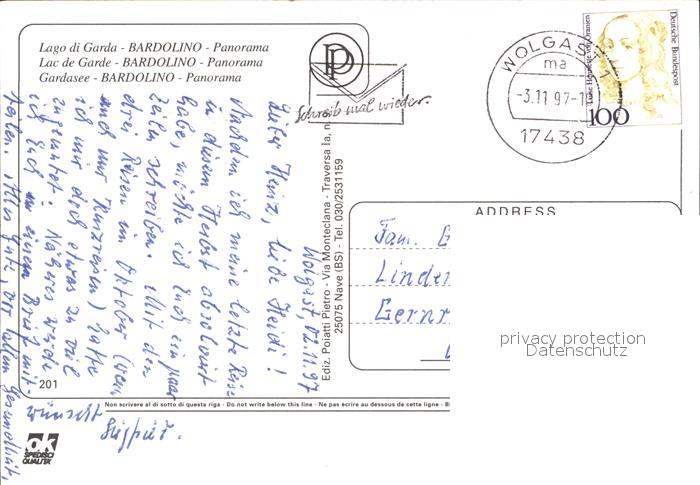 Lago di Garda - BARDOLINO - Panorama
Lac de Garde - BARDOLINO - Panorama
Gardasee - BARDOLINO - Panorama
PP
Schreib mal wieder.
WOLGAST 1
ma
-3.11.97-1
17438
Deutsche Bundespost
Luise Henriette von Oranien
100
Wolgast, 02.11.97
Lieber Heinz, liebe Heidi!
Nachdem ich meine letzte Reise
in diesem Herbst absolviert
habe, möchte ich Euch ein paar
Zeilen schreiben. Mit den
drei Reisen im Oktober (wenn
auch nur Kurzreisen) hatte
ich mir doch etwas zu viel
zugemutet. Näheres werde
ich Euch in einem Brief mit-
teilen. Alles Gute, vor allem Gesundheit,
wünscht
Ediz. Poiatti Pietro - Via Monteclana - Traversa Ia, n.
25075 Nave (BS) - Tel. 030/2531159
ADDRESS
Fam. G
Linden
Gernr
privacy protection
Datenschutz
201
Non scrivere al di sotto di questa riga - Do not write below this line - Ne pas écrire au dessous de cette ligne - B
ok
SPEDISCI
QUALITA'